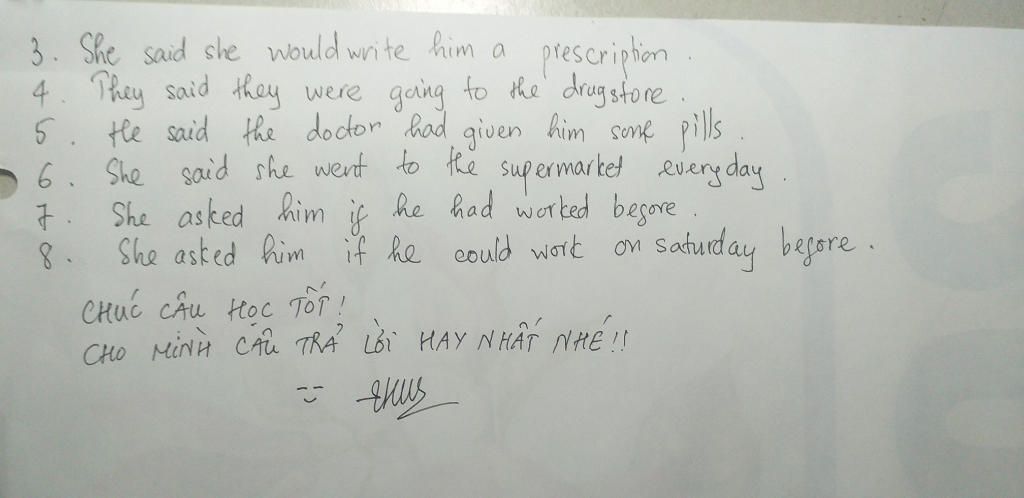 3. She said she would write him a prescription.
4. They said they were going to the drugstore.
5. He said the doctor had given him some pills.
6. She said she went to the supermarket everyday.
7. She asked him if he had worked before.
8. She asked him if he could work on saturday before.
CHÚC CÂU HỌC TỐT!
CHO MÌNH CÂU TRẢ LỜI HAY NHẤT NHÉ!!